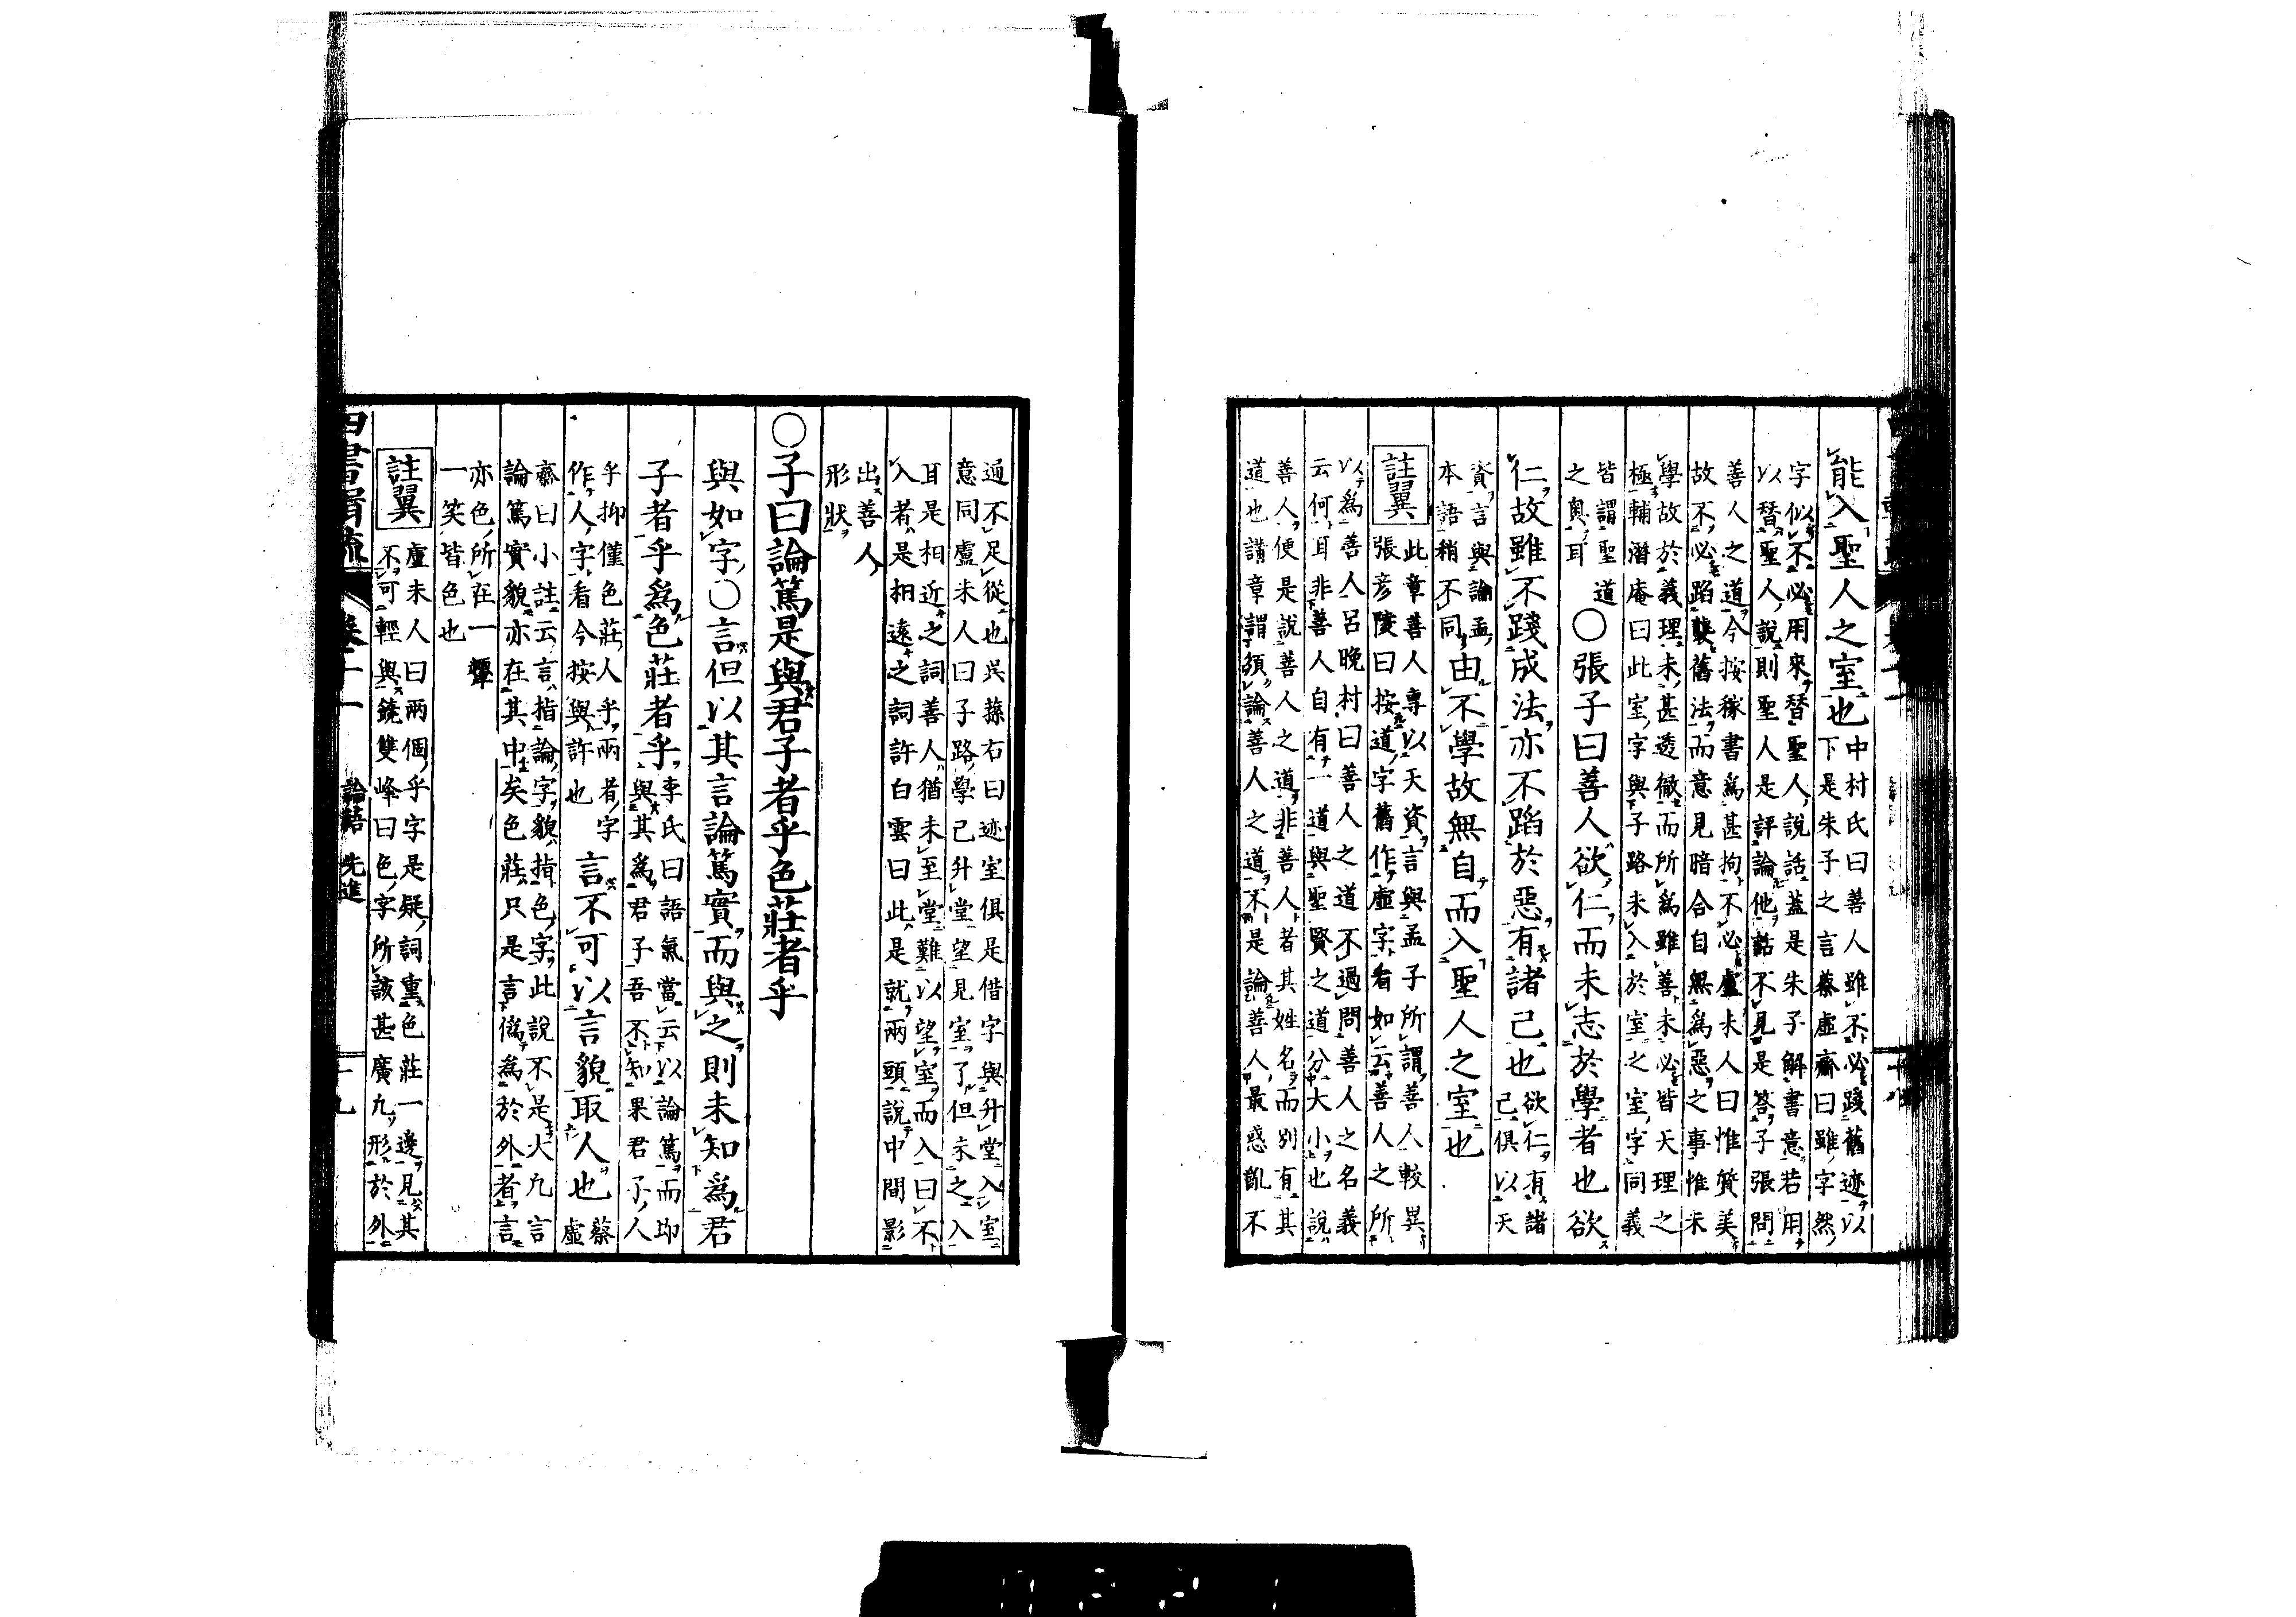 能入聖人之室也
中村氏曰善人雖不必踐舊迹以
下是朱子之言蔡虛齋曰雖字然
字似不必用來替聖人說話蓋是朱子解書意若用
以替聖人說則聖人是評論他話不見是答子張問
善人之道今按稼書爲甚拘不必盧未人曰惟質美
故不必蹈襲舊法而意見暗合自無爲惡之事惟未
學故於義理未甚透徹而所爲雖善未必皆天理之
極輔潛庵曰此室字與子路未入於室之室字同義
皆謂聖道
之奧耳
○張子曰善人欲仁而未志於學者也欲
仁故雖不踐成法亦不蹈於惡有諸己也
欲仁有諸
己俱以天
資言與論孟
本語稍不同
由不學故無自而入聖人之室也
註翼
此章善人專以天資言與孟子所謂善人較異
張彦陵曰按道字舊作虛字看如云善人之所
以爲善人呂晚村曰善人之道不過問善人之名義
云何耳非善人自有一道與聖賢之道分大小也說
善人便是說善人之道非善人者其姓名而別有其
道也講章謂須論善人之道不是論善人最惑亂不
通不足從也吳蓀右曰迹室俱是借字與升堂入室
意同盧未人曰子路學已升堂望見室了但未之入
耳是相近之詞善人猶未至堂難以望室而入曰不
入者是相遠之詞許白雲曰此是就兩頭說中間影
出善人
形狀
○子曰論篤是與君子者乎色莊者乎
與如字○言但以其言論篤實而與之則未知爲君
子者乎爲色莊者乎
李氏曰語氣當云以論篤而即
與其爲君子吾不知果君子人
乎抑僅色莊人乎兩者字
作人字看今按與許也
言不可以言貌取人也
蔡
虛
齋曰小註云言指論字貌指色字此說不是大凡言
論篤實貌亦在其中矣色莊只是言僞爲於外者言
亦色所在一顰
一笑皆色也
註翼
盧未人曰兩個乎字是疑詞重色莊一邊見其
不可輕與饒雙峰曰色字所該甚廣凡形於外
四書 疏 卷十一 論語 先進 十九